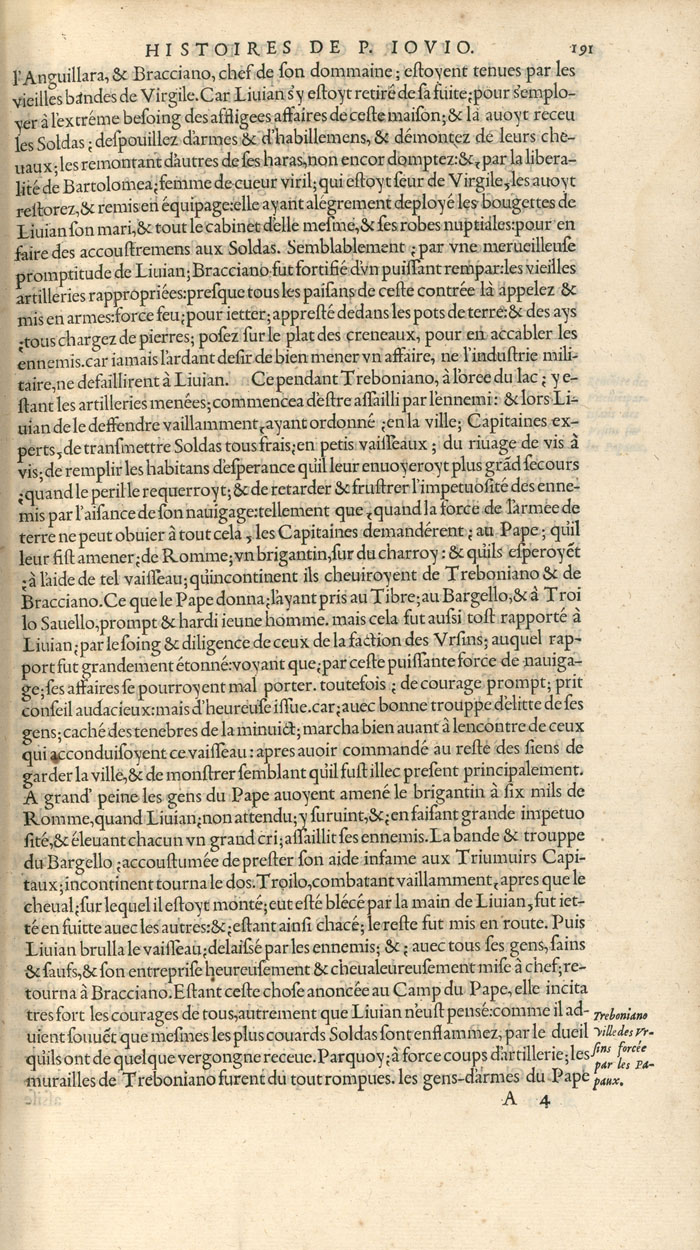 HISTOIRES DE P. IOVIO. 191
l'Anguillara, & Bracciano, chef de son dommaine; estoyent tenues par les
vieilles bandes de Virgile. Car Liuian s'y estoyt retiré de sa fuite; pour s'emplo-
yer à l'extréme besoing des affligees affaires de ceste maison; & là auoyt receu
les Soldas; despouillez d'armes & d'habillemens, & démontez de leurs che-
uaux; les remontant d'autres de ses haras, non encor domptez: &, par la libera-
lité de Bartolomea; femme de cueur viril; qui estoyt seur de Virgile, les auoyt
restorez, & remis en équipage: elle ayant alégrement deployé les bougettes de
Liuian son mari, & tout le cabinet d'elle mesme, & ses robes nuptiales: pour en
faire des accoustremens aux Soldas. Semblablement; par vne merueilleuse
promptitude de Liuian; Bracciano fut fortifié d'vn puissant rempar: les vieilles
artilleries rappropriées: presque tous les paisans de ceste contrée là appelez &
mis en armes: force feu; pour ietter; appresté dedans les pots de terre: & des ays
; tous chargez de pierres; posez sur le plat des creneaux, pour en accabler les
ennemis. car iamais l'ardant desir de bien mener vn affaire, ne l'industrie mili-
taire, ne defaillirent à Liuian. Ce pendant Treboniano, à l'oree du lac; y e-
stant les artilleries menées; commencea d'estre assailli par l'ennemi: & lors Li-
uian de le deffendre vaillamment, ayant ordonné; en la ville; Capitaines ex-
perts, de transmettre Soldas tous frais; en petis vaisseaux; du riuage de vis à
vis; de remplir les habitans d'esperance qu'il leur enuoyeroyt plus grãd secours
; quand le peril le requerroyt; & de retarder & frustrer l'impetuosité des enne-
mis par l'aisance de son nauigage: tellement que, quand la force de l'armee de
terre ne peut obuier à tout cela, les Capitaines demandérent; au Pape; qu'il
leur fist amener; de Romme; vn brigantin, sur du charroy: & qu'ils esperoyẽt
; à l'aide de tel vaisseau; qu'incontinent ils cheuiroyent de Treboniano & de
Bracciano. Ce que le Pape donna; l'ayant pris au Tibre; au Bargello, & à Troi
lo Sauello, prompt & hardi ieune homme. mais cela fut aussi tost rapporté à
Liuian; par le soing & diligence de ceux de la faction des Vrsins; auquel rap-
port fut grandement étonné: voyant que; par ceste puissante force de nauiga-
ge; ses affaires se pourroyent mal porter. toutefois; de courage prompt; prit
conseil audacieux: mais d'heureuse issue. car; auec bonne trouppe d'elitte de ses
gens; caché des tenebres de la minuict; marcha bien auant à l'encontre de ceux
qui acconduisoyent ce vaisseau: apres auoir commandé au reste des siens de
garder la ville, & de monstrer semblant qu'il fust illec present principalement.
A grand' peine les gens du Pape auoyent amené le brigantin à six mils de
Romme, quand Liuian; non attendu; y suruint, &; en faisant grande impetuo
sité, & éleuant chacun vn grand cri; assaillit ses ennemis. La bande & trouppe
du Bargello; accoustumée de prester son aide infame aux Triumuirs Capi-
taux; incontinent tourna le dos. Troilo, combatant vaillamment, apres que le
cheual; sur lequel il estoyt monté; eut esté blécé par la main de Liuian, fut iet-
té en fuitte auec les autres: &; estant ainsi chacé; le reste fut mis en route. Puis
Liuian brulla le vaisseau; delaissé par les ennemis; &; auec tous ses gens, sains
& saufs, & son entreprise heureusement & cheualeureusement mise à chef; re-
tourna à Bracciano. Estant ceste chose anoncée au Camp du Pape, elle incita
tres fort les courages de tous, autrement que Liuian n'eust pensé: comme il ad-
uient souuẽt que mesmes les plus couards Soldas sont enflammez, par le dueil
qu'ils ont de quelque vergongne receue. Parquoy; à force coups d'artillerie; les
murailles de Treboniano furent du tout rompues. les gens-d'armes du Pape
Treboniano
ville des Vr-
sins forcée
par les Pa-
paux.
A 4